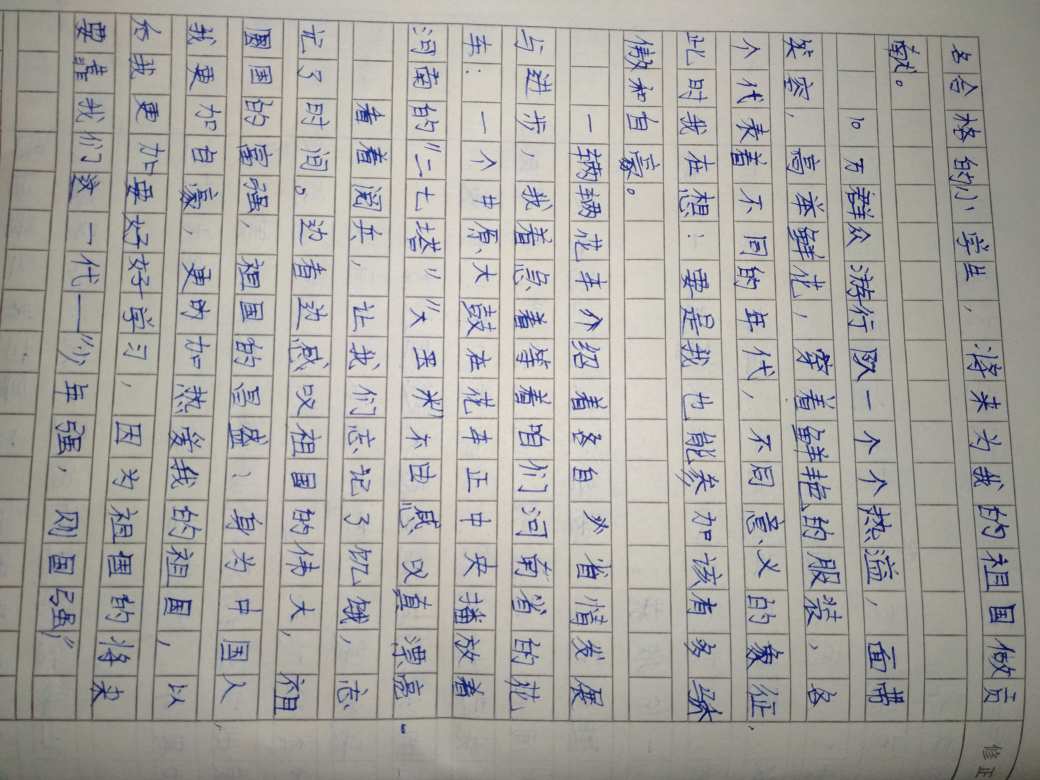 名合格的小学生，将来为我的祖国做贡
献。
10万群众游行队一个个热溢，面带
笑容，高举鲜花，穿着鲜艳的服装，各
个代表着不同的年代，不同意义的象征，
此时我在想：要是我也能参加该有多骄
傲和自豪。
一辆辆花车介绍着各自省情发展
与进步，我着急着等着咱们河南省的花
车：一个中原大鼓在花车正中央播放着
河南的“二七塔”“大玉米”不由感叹真漂亮
看着阅兵，让我们忘记了饥饿，忘
忘了时间。边看边感叹祖国的伟大，祖
国国的富强，祖国的昌盛；身为中国人
我更加自豪，更的加热爱我的祖国，以
令我更加要好好学习，因为祖国的将来
要靠我们这一代——“少年强，则国强”
修正